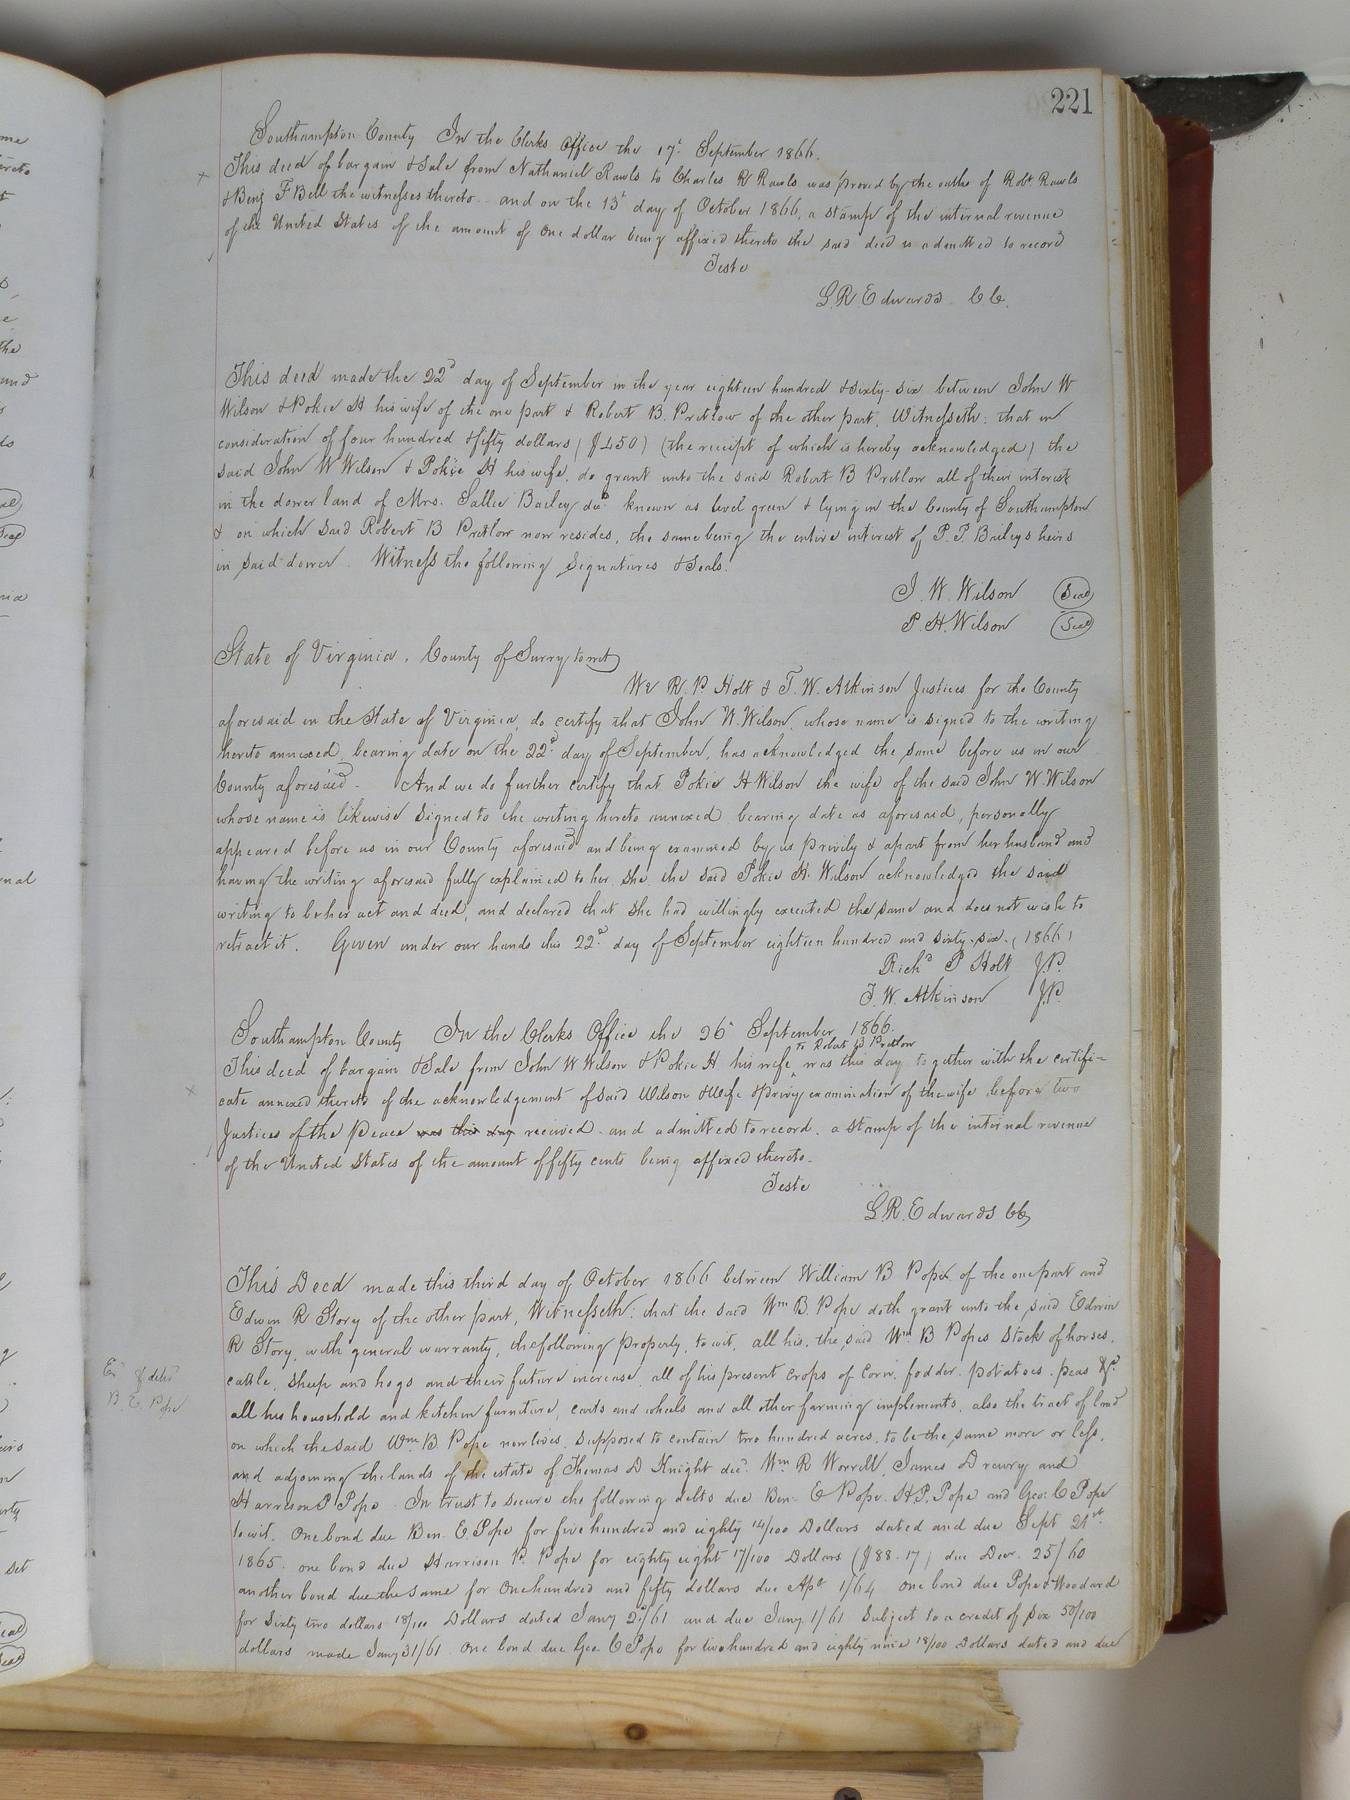 221
Southampton County In the Clerks Office the 17th September 1866.
This deed of bargain & Sale from Nathaniel Rawls to Charles R Rawls was proved by the oaths of Robt Rawls
& Benj F Bell the witnesses thereto and on the 13th day of October 1866, a stamp of the internal revenue
of the United States of the amount of one dollar being affixed thereto the said deed is admitted to record
Teste
L R Edwards CC.
This deed made the 22d day of September in the year eighteen hundred & sixty-six between John W
Wilson & Pokie H his wife of the one part & Robert B. Pretlow of the other part, Witnesseth: that in
consideration of four hundred & fifty dollars ($450) (the receipt of which is hereby acknowledged) the
said John W Wilson & Pokie H his wife, do grant unto the said Robert B Pretlow all of their interest
in the dower land of Mrs. Sallie Bailey decd known as level green & lying in the County of Southampton
& on which said Robert B Pretlow now resides, the same being the entire interest of P. P. Baileys heirs
in said dower. Witness the following Signatures & Seals.
J. W. Wilson Seal
P. H. Wilson Seal
State of Virginia, County of Surry to wit
We R. P. Holt & T. W. Atkinson Justices for the County
aforesaid in the State of Virginia, do certify that John W. Wilson, whose name is signed to the writing
hereto annexed, bearing date on the 22d day of September, has acknowledged the same before us in our
County aforesaid. And we do further certify that Pokie H Wilson the wife of the said John W. Wilson
whose name is likewise signed to the writing hereto annexed bearing date as aforesaid, personally
appeared before us in our County aforesaid and being examined by us privily & apart from her husband and
having the writing aforesaid fully explained to her she the said Pokie H. Wilson acknowledged the said
writing to be her act and deed, and declared that she had willingly executed the same and does not wish to
retract it. Given under our hands this 22d day of September eighteen hundred and sixty-six. (1866)
Richd P Holt J.P.
T. W. Atkinson J.P.
Southampton County In the Clerks Office the 26th September 1866.
to Robert B Pretlow
This deed of bargain & Sale from John W Wilson & Pokie H his wife, was this day together with the certifi-
cate annexed thereto of the acknowledgement of said Wilson & Wife & privy examination of the wife before two
Justices of the Peace was this day received and admitted to record. a stamp of the internal revenue
of the United States of the amount of fifty cents being affixed thereto
Teste
L. R. Edwards CC
This Deed made this third day of October 1866 between William B Pope of the one part and
Edwin R Story of the other part, Witnesseth: that the said Wm B. Pope doth grant unto the said Edwin
R Story, with general warranty, the following property, to wit, all his, the said Wm B Popes Stock of horses,
cattle, sheep and hogs and their future increase, all of his present crops of corn, fodder, potatoes, peas &c
Ed & deld
B. E. Pope
all his household and kitchen furniture, carts and wheels and all other farming implements, also the tract of land
on which the said Wm B Pope now lives, supposed to contain two hundred acres, to be the same more or less,
and adjoining the lands of the estate of Thomas D Knight decd Wm R Worrell, James Drewry and
Harrison P Pope In trust to secure the following debts due Ben. E Pope. H. P. Pope and Geo. C Pope
to wit. One bond due Ben. E Pope for five hundred and eighty 14/100 Dollars dated and due Sept 21st
1865. one bond due Harrison P. Pope for eighty eight 17/100 Dollars ($88.17) due Decr 25/60
another bond due the same for one hundred and fifty dollars due Apl 1/64 one bond due Pope & Woodard
for sixty two dollars 18/100 Dollars dated Jany 2d/61 and due Jany 1/61 Subject to a credit of six 50/100
dollars made Jany 31/61 One bond due Geo. C Pope for two hundred and eighty nine 18/100 Dollars dated and due